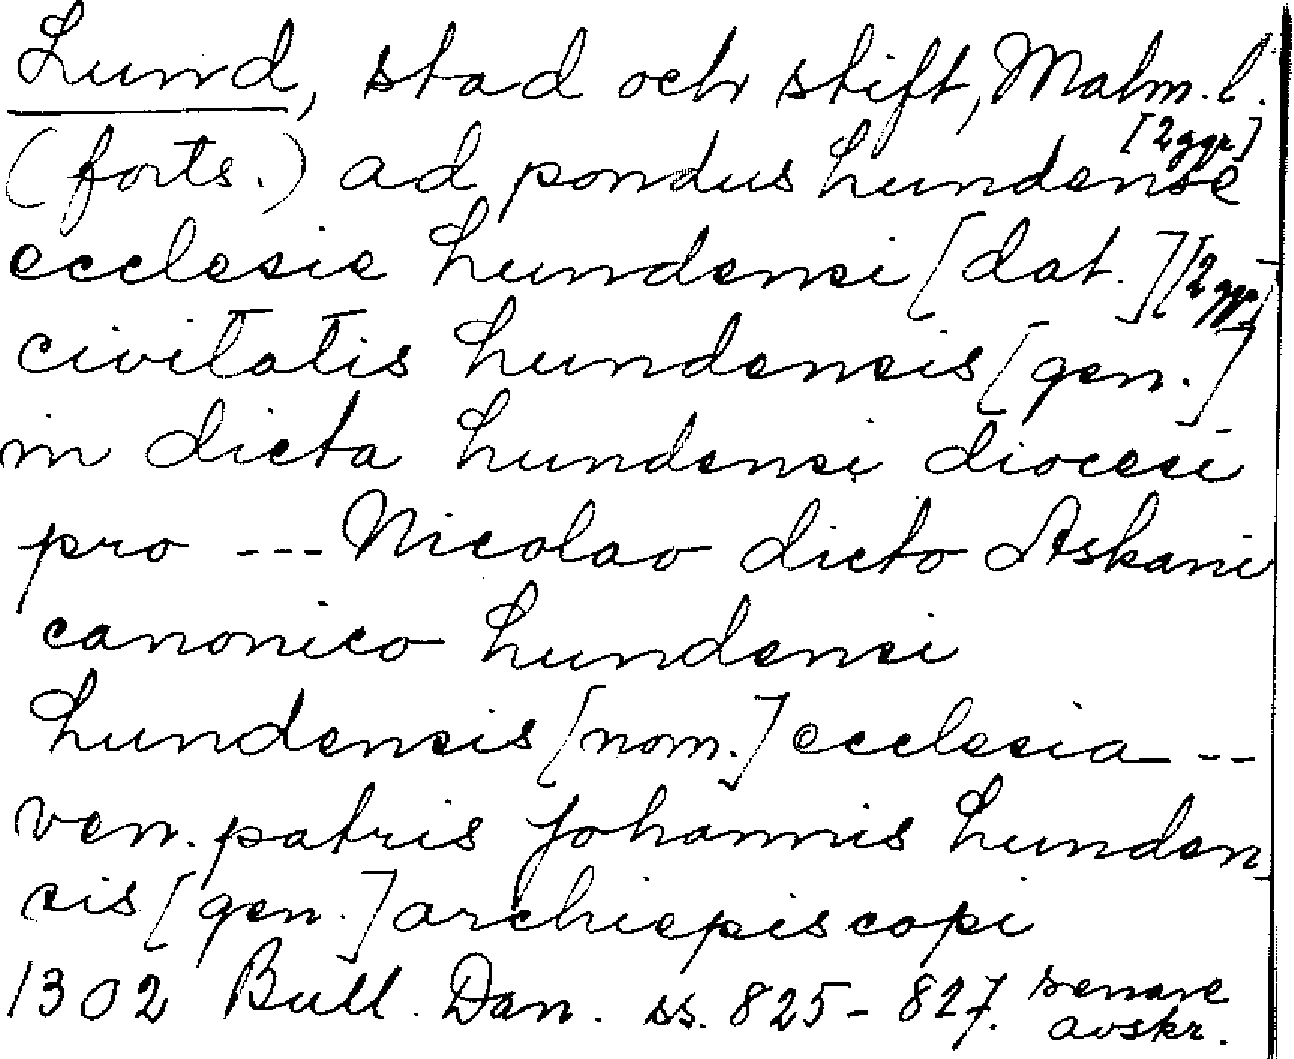 Lund, stad och stift, Malm. l.
(forts.) ad pondus Lundense [2 ggr]
ecclesie Lundensi [dat.] [2 ggr]
civitatis Lundensis [gen.]
in dicta Lundensi diocesi
pro --- Nicolao dicto Askani
canonico Lundensi
Lundensis [nom.] ecclesia --
ven. patris Johannis Lunden-
sis [gen.] archiepiscopi
1302 Bull. Dan. ss. 825-827. senare
avskr.